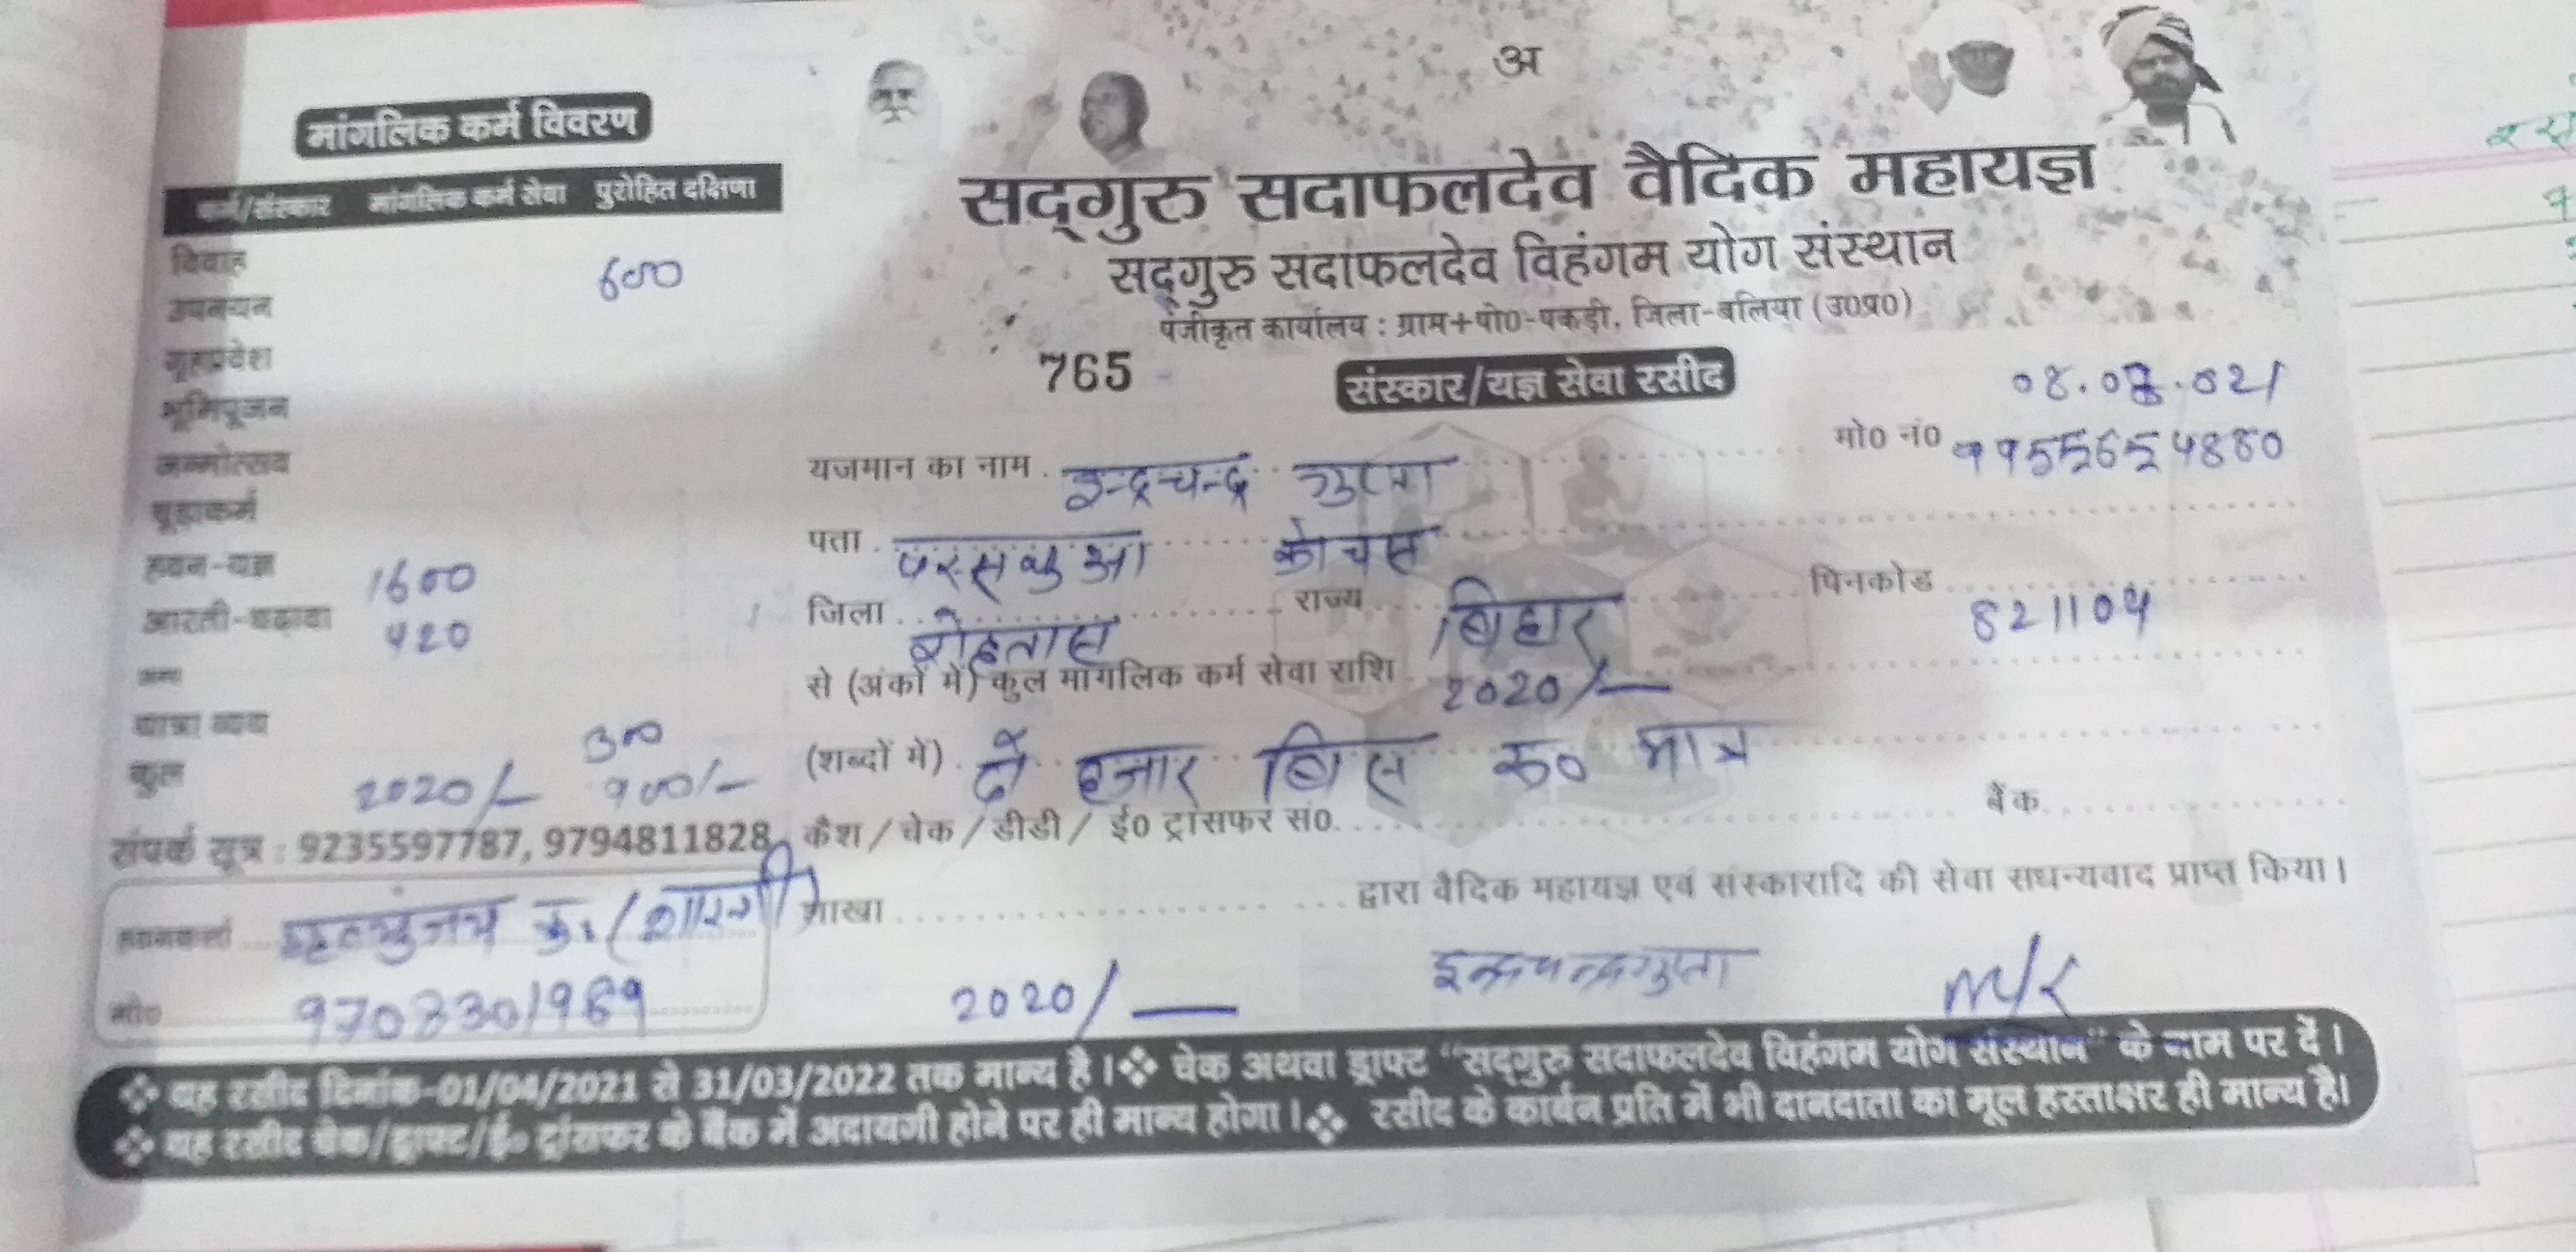 अ
मांगलिक कर्म विवरण
कर्म/संस्कार मांगलिक कर्म सेवा पुरोहित दक्षिणा
विवाह 600
उपनयन
गृहप्रवेश
भूमिपूजन
जन्मोत्सव
चूड़ाकर्म
हवन-यज्ञ 1600
आरती-चढ़ावा 420
अन्य
यात्रा व्यय 300
कुल 2020/- 900/-
संपर्क सूत्र : 9235597787, 9794811828
हवनकर्ता मृत्युंजय कु.
मो० 9708301969
सद्‌गुरु सदाफलदेव वैदिक महायज्ञ
सद्‌गुरु सदाफलदेव विहंगम योग संस्थान
पंजीकृत कार्यालय : ग्राम+पो0-पकड़ी, जिला-बलिया (उ0प्र0)
765 संस्कार/यज्ञ सेवा रसीद
यजमान का नाम इन्द्रचन्द्र गुप्ता मो0 नं0
पता कोचस
जिला रोहतास राज्य बिहार पिनकोड 821104
से (अंकों में) कुल मांगलिक कर्म सेवा राशि 2020/-
(शब्दों में) दो हजार बिस रू० मात्र
कैश / चेक / डीडी / ई0 ट्रांसफर सं0 बैंक
शाखा द्वारा वैदिक महायज्ञ एवं संस्कारादि की सेवा सधन्यवाद प्राप्त किया।
2020/- इन्द्रचन्द्र गुप्ता
❖ यह रसीद दिनांक-01/04/2021 से 31/03/2022 तक मान्य है। ❖ चेक अथवा ड्राफ्ट "सद्‌गुरु सदाफलदेव विहंगम योग संस्थान" के नाम पर दें।
❖ यह रसीद चेक/ड्राफ्ट/ई० ट्रांसफर के बैंक में अदायगी होने पर ही मान्य होगा। ❖ रसीद के कार्बन प्रति में भी दानदाता का मूल हस्ताक्षर ही मान्य है।